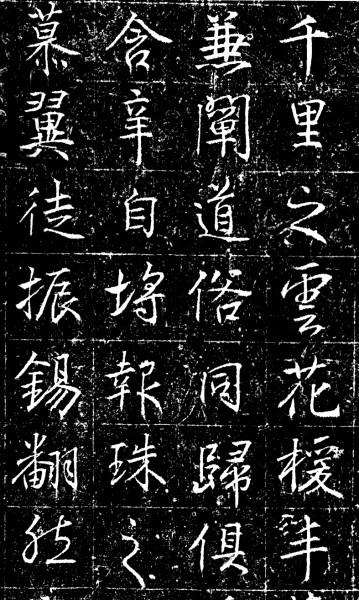 千里之雲花半
兼闡道俗同歸俱
含辛自埒報珠之
慕翼徒振錫翻然